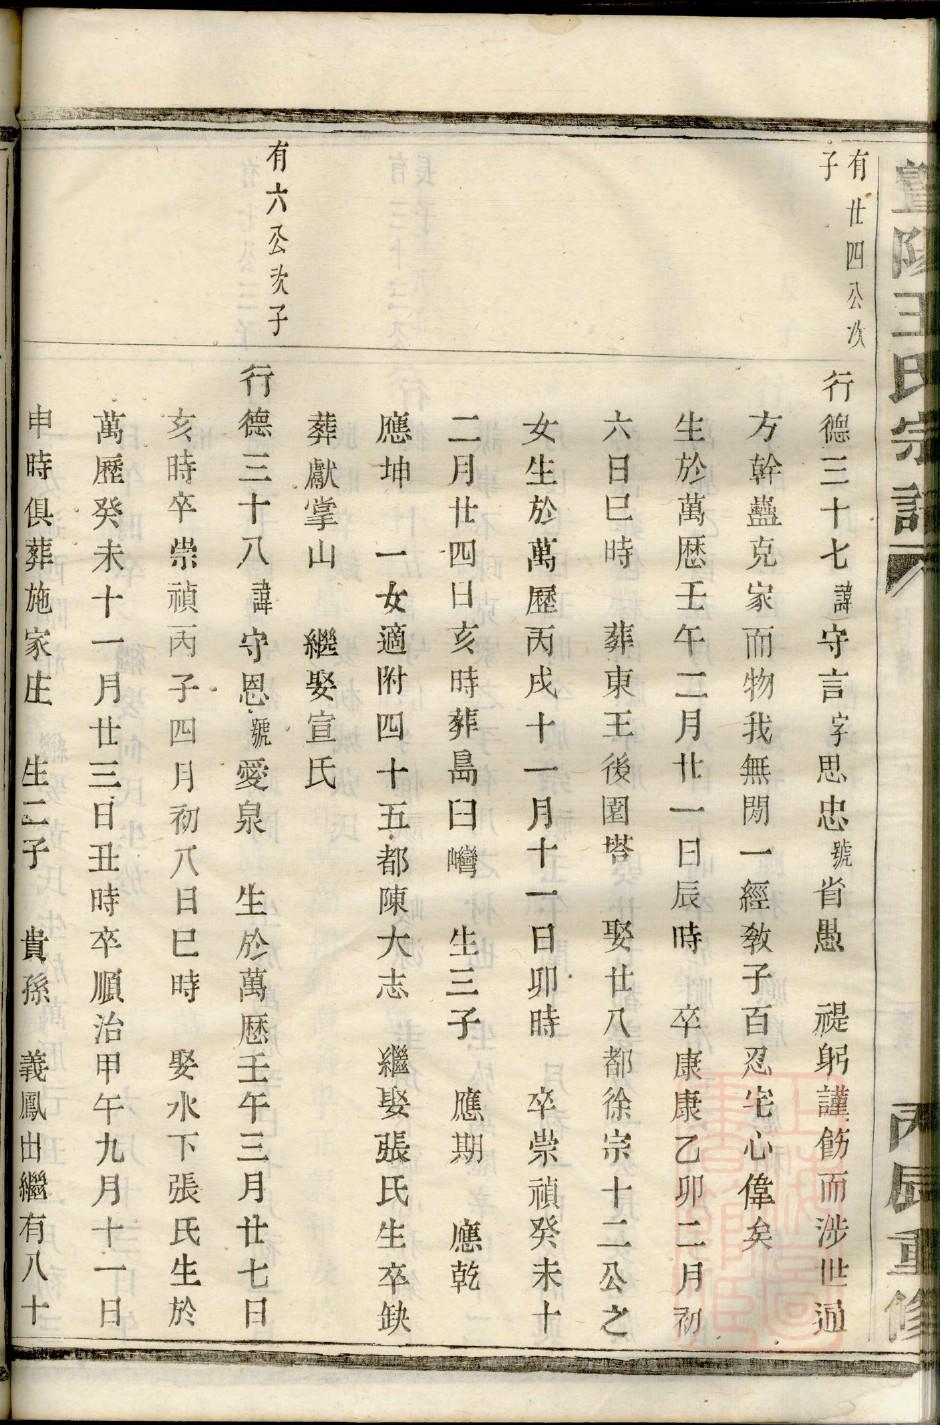 暨陽王氏宗譜
丙辰重修
有廿四公次
子
行德三十七諱守言字思忠號省愚 禔躬謹飭而涉世通
方幹蠱克家而物我無間一經敎子百忍宅心偉矣
生於萬厯壬午二月廿一日辰時 卒康康乙卯二月初
六日巳時 葬東王後園塔 娶廿八都徐宗十二公之
女生於萬歷丙戌十一月十一日卯時 卒崇禎癸未十
二月廿四日亥時葬島臼巒 生三子 應期 應乾
應坤 一女適附四十五都陳大志 繼娶張氏生卒缺
葬獻掌山 繼娶宣氏
有六公次子
行德三十八諱守恩號愛泉 生於萬厯壬午三月廿七日
亥時卒崇禎丙子四月初八日巳時 娶水下張氏生於
萬歷癸未十一月廿三日丑時卒順治甲午九月十一日
申時俱葬施家庄 生二子 貴孫 義鳳出繼有八十